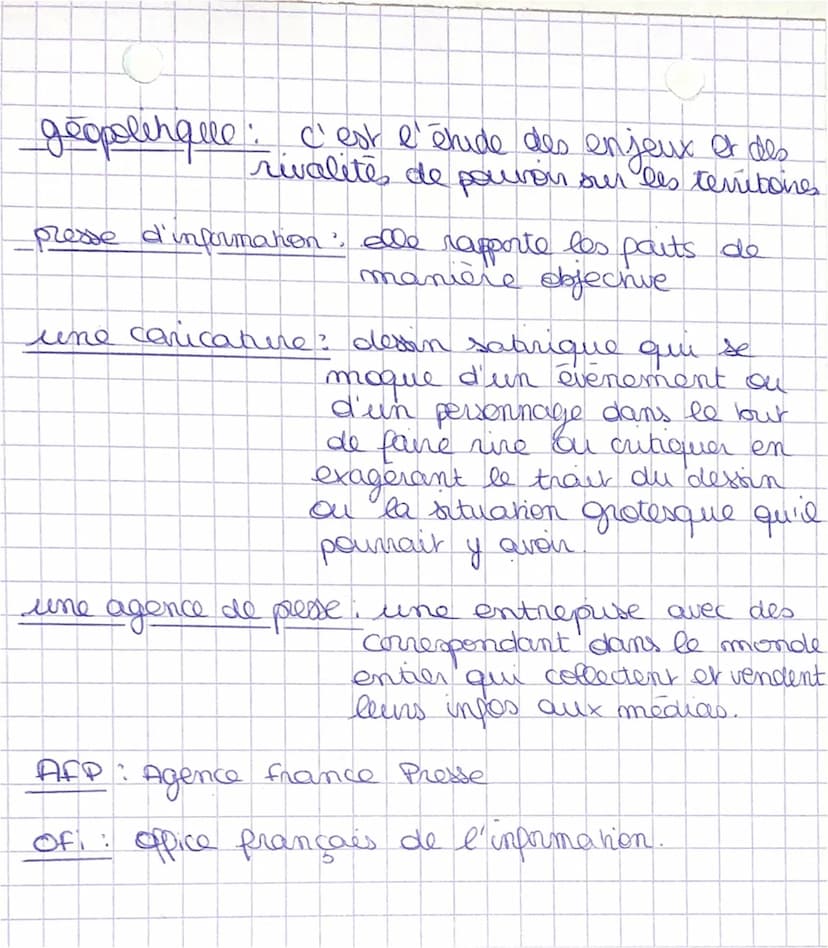 géopolitique : c'est l'étude des enjeux et des
rivalités de pouvoir sur les territoires
presse d'information : elle rapporte les faits de
manière objective
une caricature : dessin satirique qui se
moque d'un évènement ou
d'un personnage dans le but
de faire rire ou critiquer en
exagérant le trait du dessin
ou la situation grotesque qu'il
pourrait y avoir.
une agence de presse : une entreprise avec des
correspondant dans le monde
entier qui collectent et vendent
leurs infos aux médias.
AFP : Agence france Presse
Ofi : Office français de l'information.